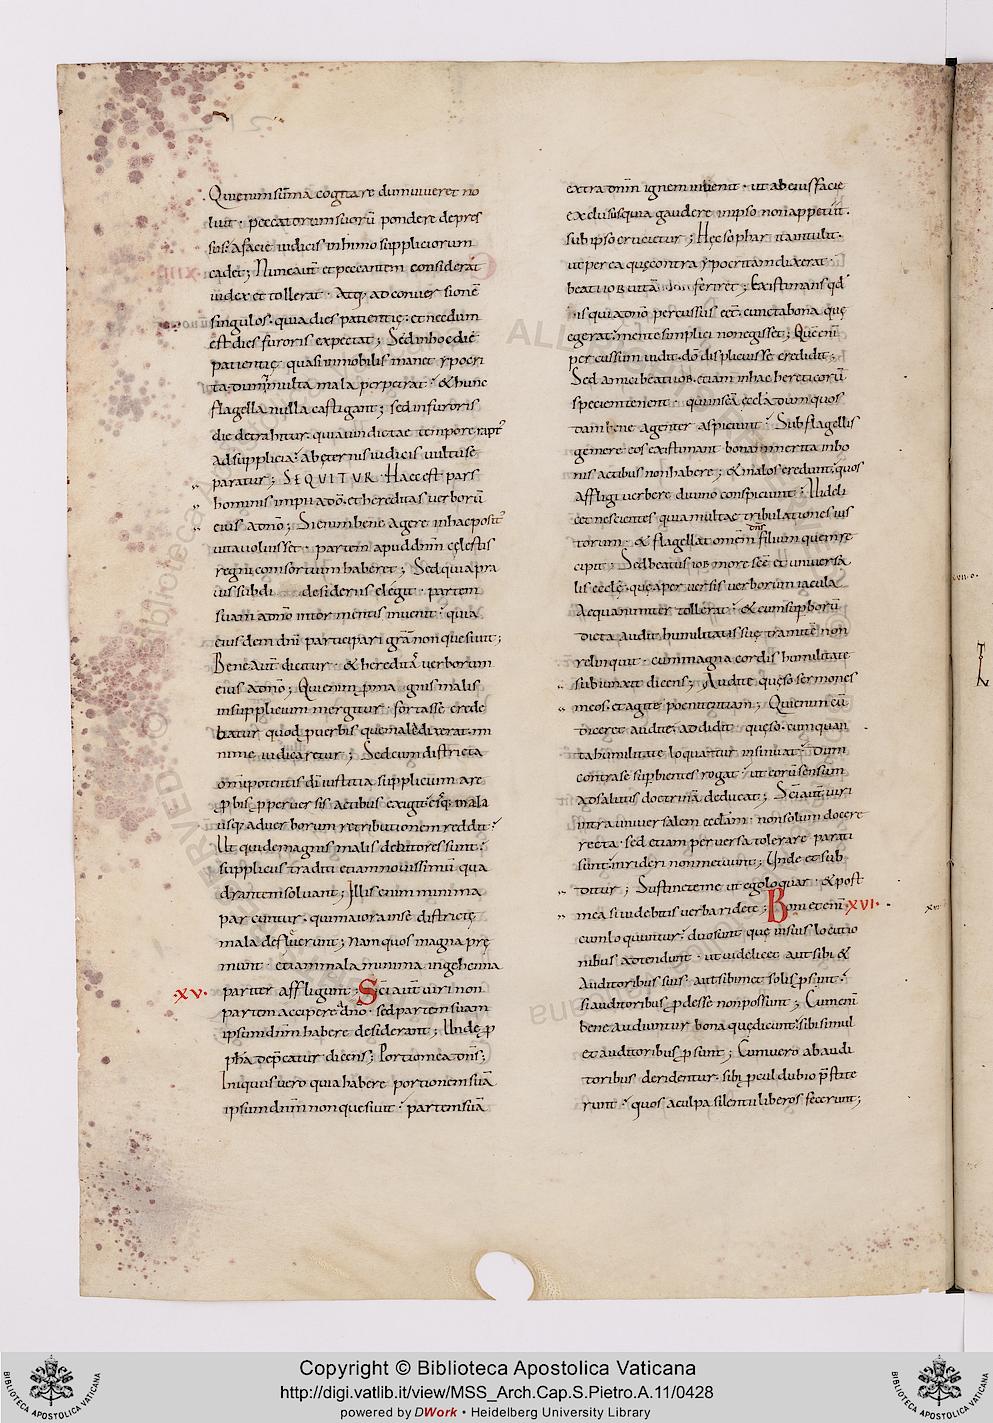 Qui enim sūma cogitare dum viveret no
luit · peccatorum suorū pondere depres
sus · a facie iudicis in himo suppliciorum
cadet ; Nunc aut̄ et peccantem considerat
iudex et tollerat · Atq; ad conversionē
singulos · quia dies patientię · et necdum
est dies furoris expectat ; Sed in hoc die
patientię quasi inmobilis manet ypocri
ta · dum multa mala perpetrat · & hunc
flagella nulla castigant ; sed in furoris
die detrahitur · quia vindictae tempore rapit᷑
ad supplicia · ab ęternis iudicis vultu se
paratur ; SEQUITUR · Haec est pars
hominis impii a dō · et hereditas verborū
eius a dn̄o ; Si enim bene agere in hac posit᷑
vita voluisset · partem apud dn̄m cęlestis
regni consortium haberet ; Sed quia pra
vis subdi desideriis elegit · partem
suam a dn̄o in tormentis invenit · quia
eiusdem dn̄i participari grā̄ non quesivit ;
Bene aut̄ dicitur · & hereditas verborum
eius a dn̄o ; Qui enim p̄ma ignis malis
in supplicium mergitur · fortasse crede
batur quod p verbis que male dixerat · mi
nime iudicaretur ; Sed cum districta
om̄ipotentis dī iustitia supplicium a re
pbis p perversis actibus exigit · eisq; mala
usq; ad verborum retributionem reddit ·
Ut qui de magnis malis debitores sunt ·
suppliciis traditi etiam novissimū qua
drantem solvant ; Illis enim minima
parcuntur · qui maiora in se districtę
mala defleverunt ; Nam quos magna prę
munt · etiam mala minima in gehenna
·XV· pariter affligunt ; Sc̄i aut̄ viri non
partem accipere a dn̄o · sed partem suam
ipsum dn̄m habere desiderant ; Unde p
pha depcatur dicens ; Portio mea dn̄s ;
Iniquus vero quia habere portionem suā
ipsum dn̄m non quesivit · partem suā
extra dn̄m ignem invenit · ut ab eius facie
exclusus quia gaudere in ipso non appetiit ·
sub ipso crucietur ; Hęc sophar ita intulit ·
ut per ea quę contra ypocritam dixerat ·
beati iob vitā feriret ; Existimans qd̄
is qui a dn̄o percussus eēt · cuncta bona quę
egerat · mente simplici non egisset ; Quē enī
percussum vidit · dō displicuisse credidit ;
Sed amici beati iob · etiam in hac hereticorū
speciem tenent · qui in sc̄a ęcclā dum quos
dam bene agentes aspiciunt · Sub flagellis
gemere · eos existimant bona merita in bo
nis actibus non habere ; & malos credunt · quos
affligi verbere divino conspiciunt · Videli
cet nescientes quia multae tribulationes ius
dn̄s
torum · & flagellat om̄em filium quem re
cipit ; Sed beatus iob more sc̄ę et universa
lis ecclę · quę perversis verborum iacula
aequanimiter tollerat · & cum supborū
dicta audit · humilitatis suę tramitē non
relinquit · cum magna cordis humilitate
subiunxit dicens ; Audite quęso sermones
meos · et agite poenitentiam ; Qui enim cū
diceret audite · addidit quęso · cum quan
ta humilitate loquatur insinuat · Dum
contra se supbientes rogat · ut eorū sensum
ad salutis doctrinā deducat ; Sc̄i aut̄ viri
intra universalem ecclam · non solum docere
recta · sed etiam perversa tolerare parati
sunt · inrideri non metuunt ; Unde et sub
ditur ; Sustinete me ut ego loquar · & post
mea si videbitis verba ridete ; Boni etenī ·XVI·
cum locuntur · duo sunt quę in suis locutio
nibus adtendunt · ut videlicet aut sibi &
auditoribus suis · aut sibimet solis psint ·
si auditoribus pdesse non possunt ; Cum enī
bene audiuntur bona quę dicunt · sibi simul
et auditoribus psunt ; Cum vero ab audi
toribus deridentur · sibi pcul dubio pstite
runt · quos a culpa silentii liberos fecerunt ;
Copyright © Biblioteca Apostolica Vaticana
http://digi.vatlib.it/view/MSS_Arch.Cap.S.Pietro.A.11/0428
powered by DWork • Heidelberg University Library
BIBLIOTECA APOSTOLICA VATICANA
BIBLIOTECA APOSTOLICA VATICANA